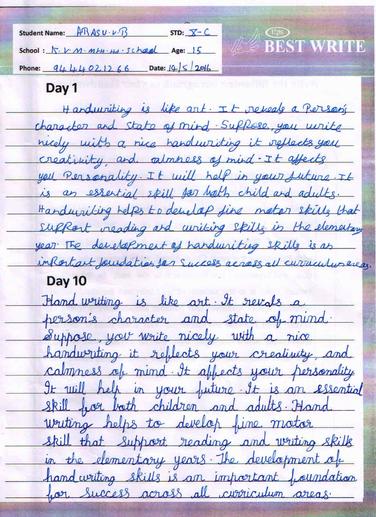 Student Name: ABASU.V.B STD: X-C
School: K.V.M. School Age: 15
Phone: 9444021266 Date: 14/5/2014
Tips
BEST WRITE
Day 1
Handwriting is like art. It reveals a Person's
character and state of mind. Suppose, you write
nicely with a nice handwriting it reflects you
creativity, and calmness of mind. It affects
you Personality. It will help in your future. It
is an essential skill for both child and adults.
Handwriting helps to develop fine motor skills that
support reading and writing skills in the elementary
year The development of handwriting skills is an
important foundation for success across all curriculum areas.
Day 10
Hand writing is like art. It revals a
person's character and state of mind.
Suppose, you write nicely with a nice
handwriting it reflects your creativity, and
calmness of mind. It affects your personality
It will help in your future. It is an essential
skill for both children and adults. Hand
writing helps to develop fine motor
skill that support reading and writing skills
in the elementary years. The development of
hand writing skills is an important foundation
for success across all curriculum areas.